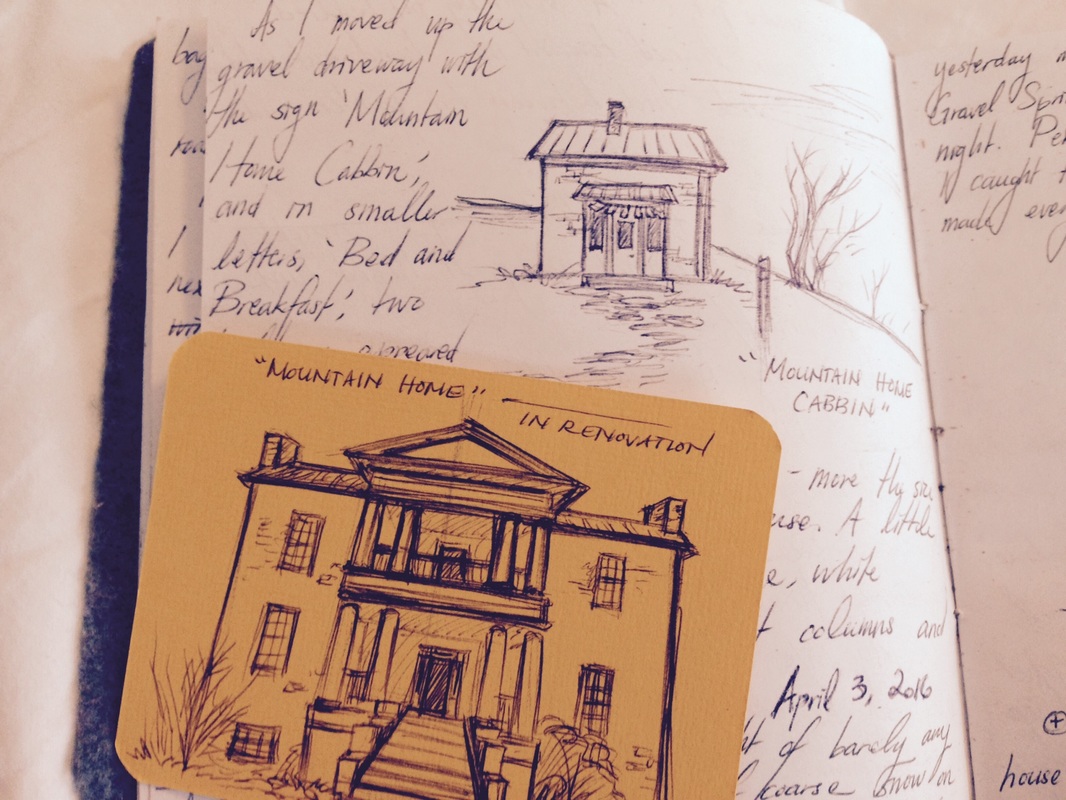 As I moved up the
gravel driveway with
the sign 'Mountain
Home Cabbin',
and in smaller
letters, 'Bed and
Breakfast', two
appeared
"MOUNTAIN HOME
CABBIN"
"MOUNTAIN HOME"
IN RENOVATION
- more
A little
white
columns and
April 3, 2016
of barely any
coarse snow in
bag
I
yesterday
Gravel
night.
I caught
made
house